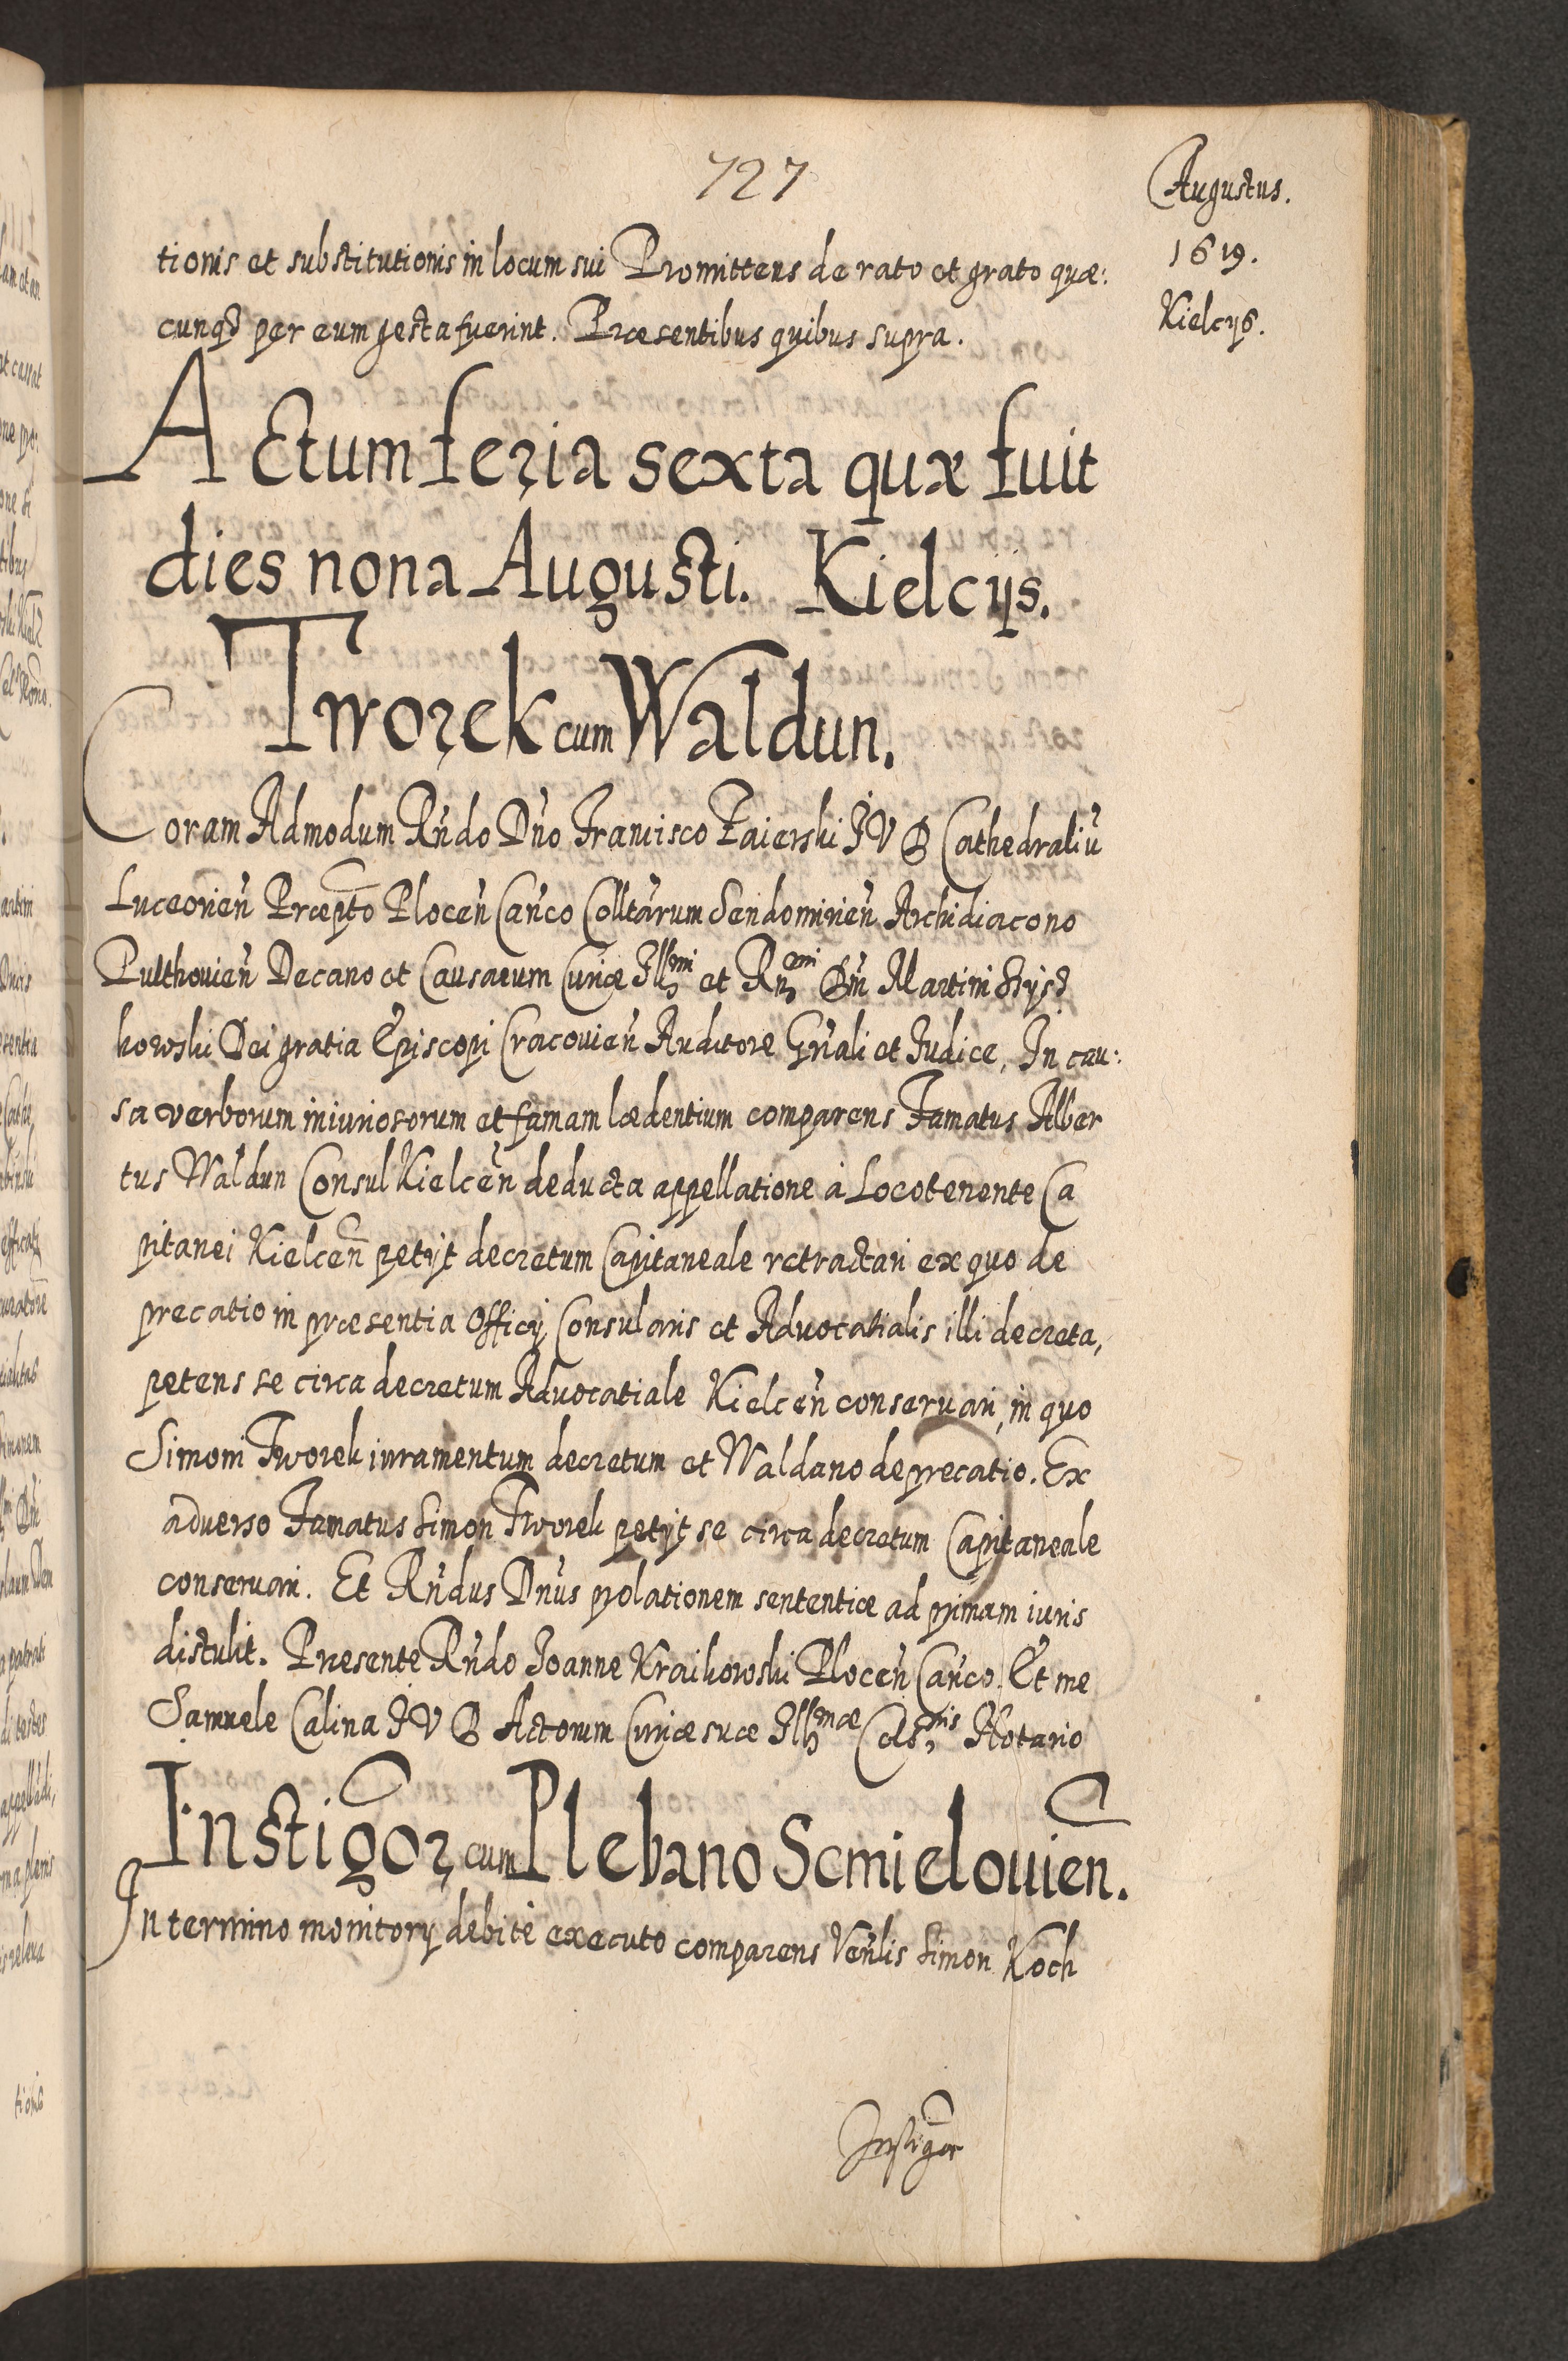 727
Augustus.
1619.
Kielcijs.
tionis et substitutionis in locum sui Promittens de rato et grato quæ:
cunqȝ per eum gesta fuerint. Præsentibus quibus supra.
Actum feria sexta quæ fuit
dies nona Augusti. Kielcijs.
Tworek cum Waldun.
Coram Admodum Rñdo Dño Francisco Zaierski IVD Cathedraliũ
Luceorien̄ Præpto Plocen̄ Can̄co Colltarum Sendomirien̄ Archidiacono
Pulthouien̄ Decano et Causarum Curiæ Illmi et Rnmi Dn̄i Martini
kowski Dei gratia Episcopi Cracouien̄ Auditore Gn̄ali et Iudice, In cau:
sa verborum iniuriosorum et famam lædentium comparens Famatus Alber
tus Waldun Consul Kielcen̄ deducta appellatione à Locotenente Ca
pitanei Kielcen̄ petijt decretum Capitaneale retractari ex quo de
precatio in præsentia Officij Consularis et Aduocatialis illi decreta,
petens se circa decretum Aduocatiale Kielcen̄ conseruari, in quo
Simoni Tworek iuramentum decretum et Waldano deprecatio. Ex
aduerso Famatus Simon Tworek petijt se circa decretum Capitaneale
conseruari. Et Rñdus Dñus prolationem sententiæ ad primam iuris
distulit. Præsente Rñdo Joanne Kraikowski Plocen̄ Can̄co. Et me
Samuele Calina IVD Actorum Curiæ suæ Illmæ Celsnis Notario
Instigor cum Plebano Scmielouien̄.
In termino monitorij debitè executo comparens Ven̄lis Simon Koch
Instigor